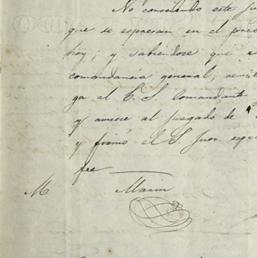 No conociendo este Ju
que se espresan en el prese
hoy; y sabiendose que e
comandancia general,
ga al C. S. Comandante
y avisese al juzgado de
y firmó el S. Juez
fee
M Marin